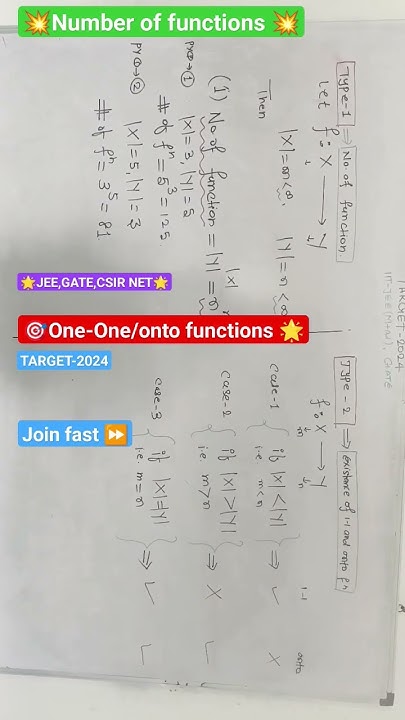 💥Number of functions 💥
🌟JEE,GATE,CSIR NET🌟
🎯One-One/onto functions 🌟
TARGET-2024
Join fast ⏩
TARGET-2024
IIT-JEE(M+A), GATE
Type-1 ⇒ No. of function.
Let f: X → Y
|X|=m<∞, |Y|=n<∞
Then
(1) No. of function = |Y|^|X| = n
PYQ→① |X|=3, |Y|=5
# of fⁿ = 5³ = 125.
PYQ→② |X|=5, |Y|=3
# of fⁿ = 3⁵ = 81
Type-2 ⇒ existance of 1-1 and onto fⁿ
f: X → Y
m n
1-1 onto
Case-1 if |X|<|Y| ⇒ ✓ X
i.e. m<n
Case-2 if |X|>|Y| ⇒ X ✓
i.e. m>n
Case-3 if |X|=|Y| ⇒ ✓ ✓
i.e. m=n